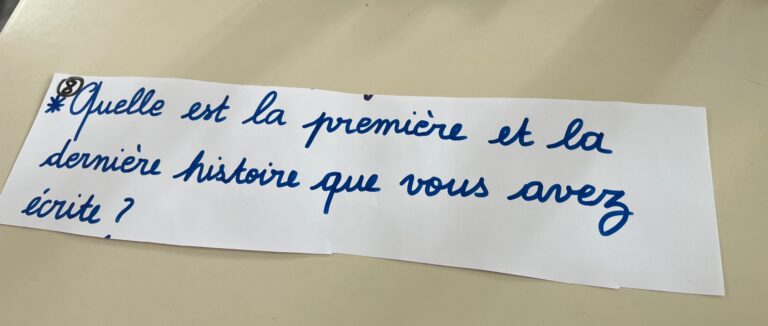 8
*Quelle est la première et la
dernière histoire que vous avez
écrite ?